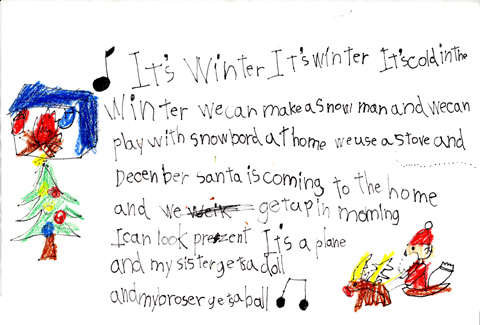 It's Winter It's winter It's cold in the
Winter we can make a snow man and we can
play with snowbord at home we use a stove and
December santa is coming to the home
and we get up in morning
I can look present It's a plane
and my sister gets a doll
and my broser gets a ball